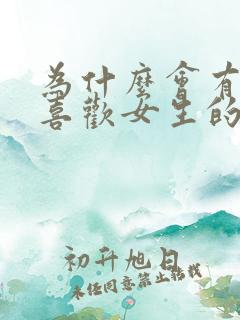 為什麼會有
喜歡女生的
初升旭日
未經同意禁止轉載